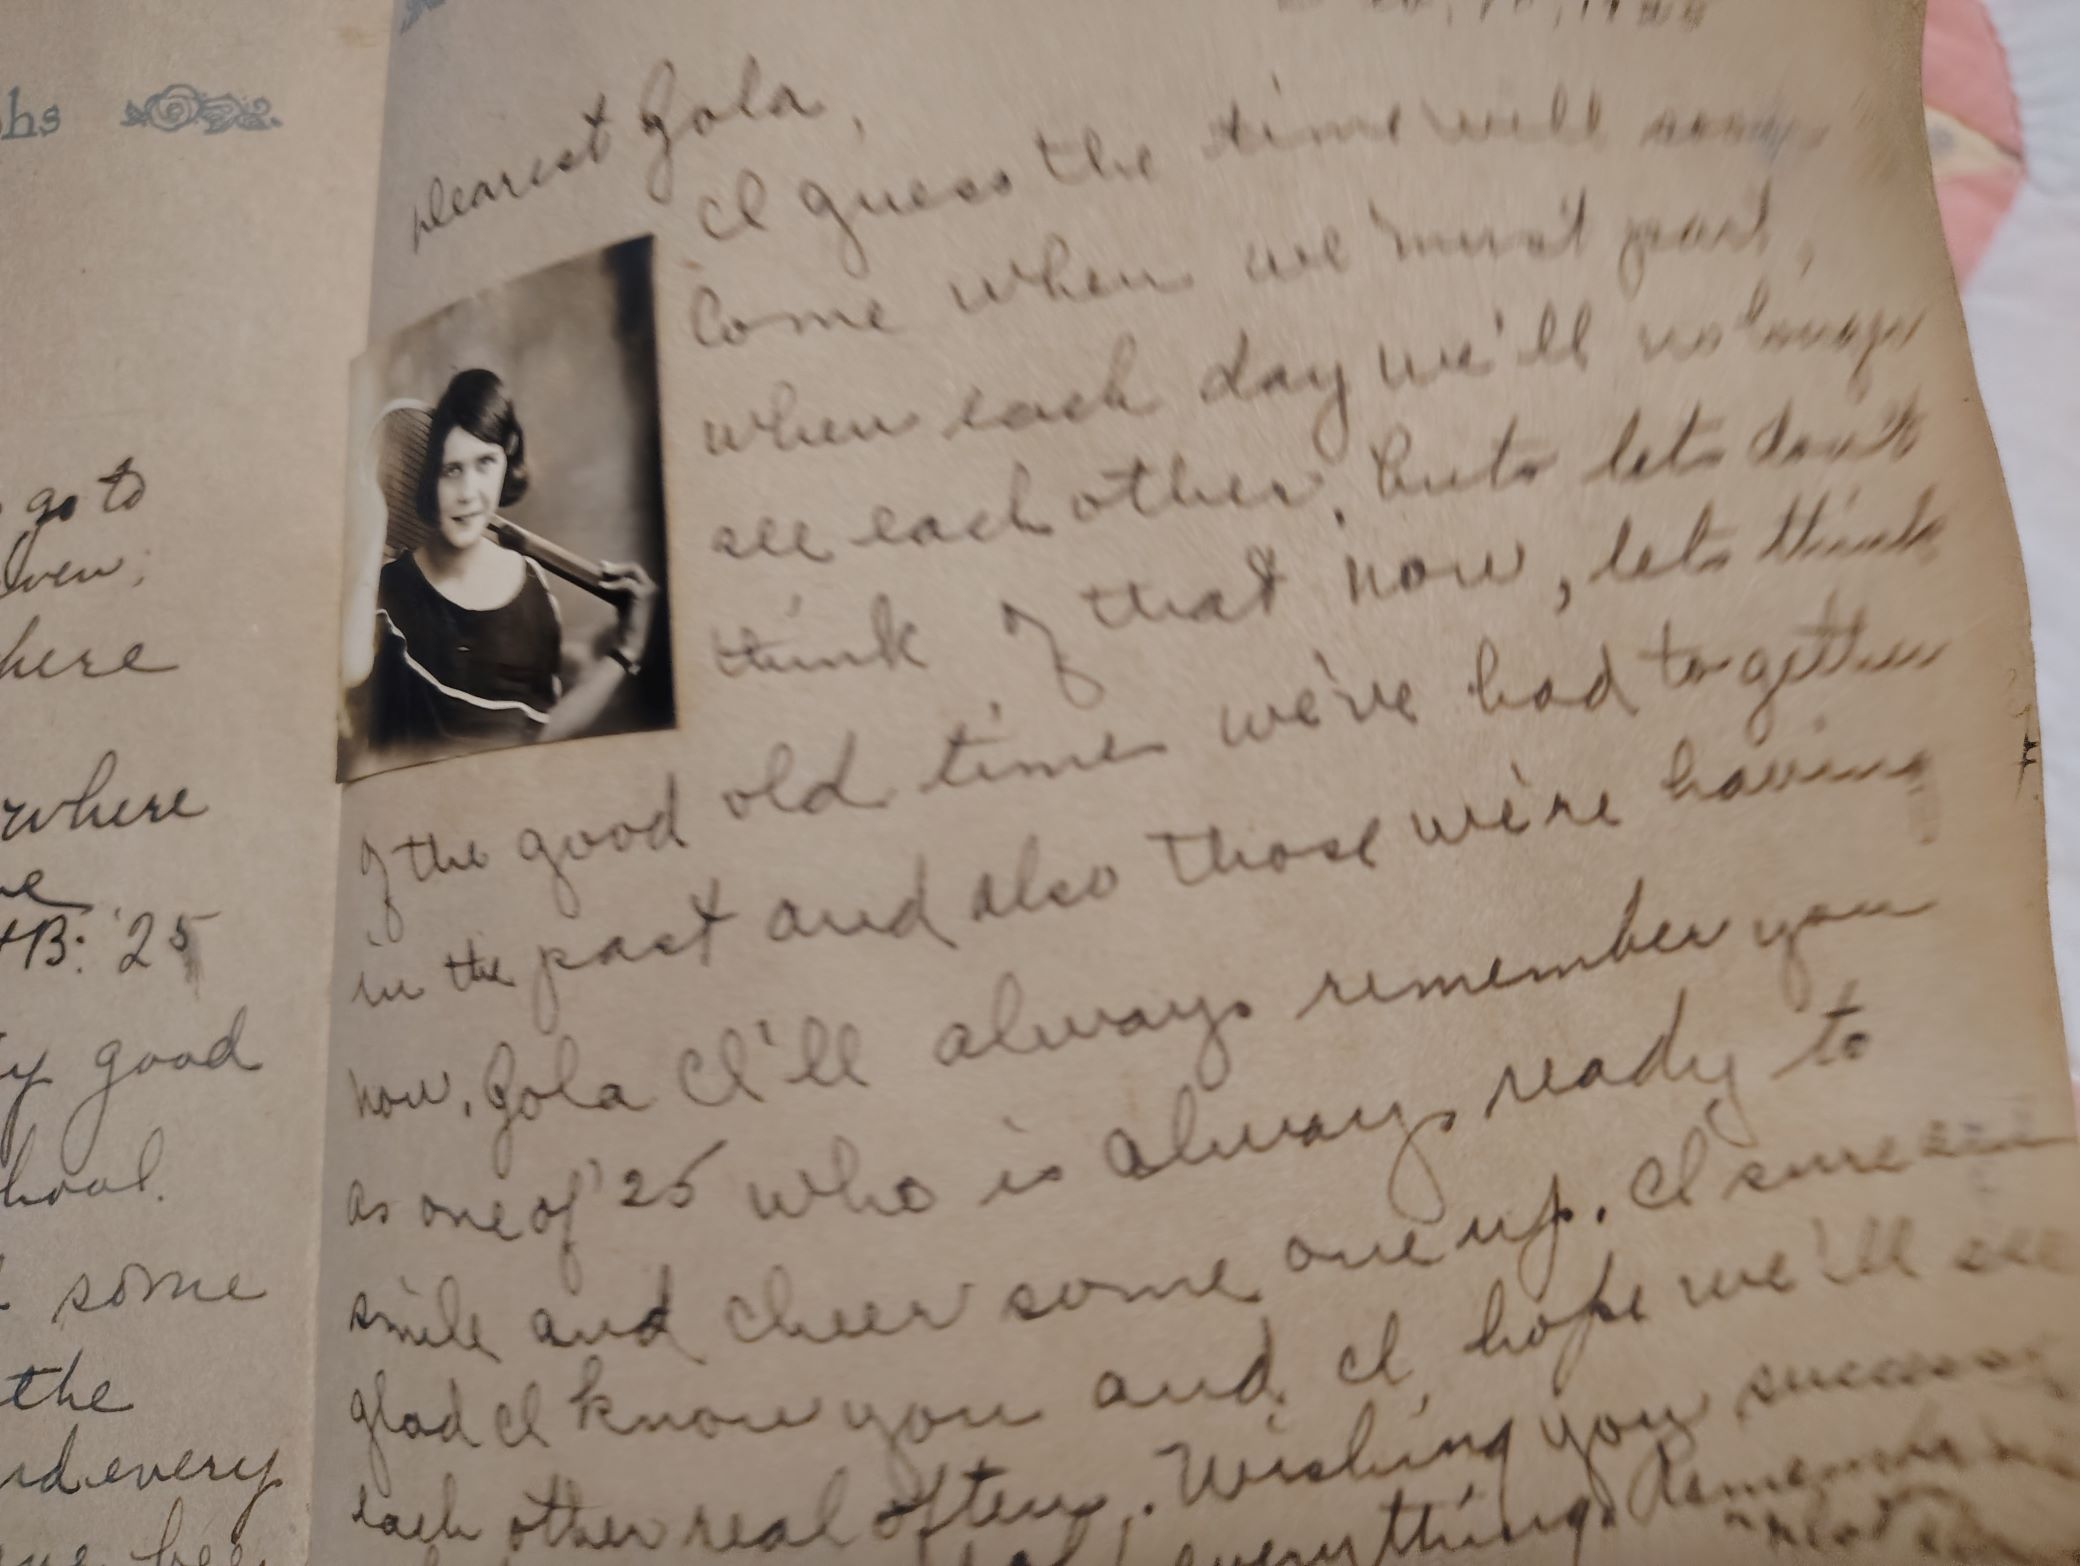 go to
here
where
+B: '25
good
some
the
every
Dearest Gola,
I guess the time will soon
come when we must part,
when each day we'll no longer
see each other, but lets don't
think of that now, lets think
of the good old times we've had together
in the past and also those we're having
now. Gola I'll always remember you
as one of '25 who is always ready to
smile and cheer some one up. I sure am
glad I know you and I hope we'll see
each other real often. Wishing you success
everything. Remember me